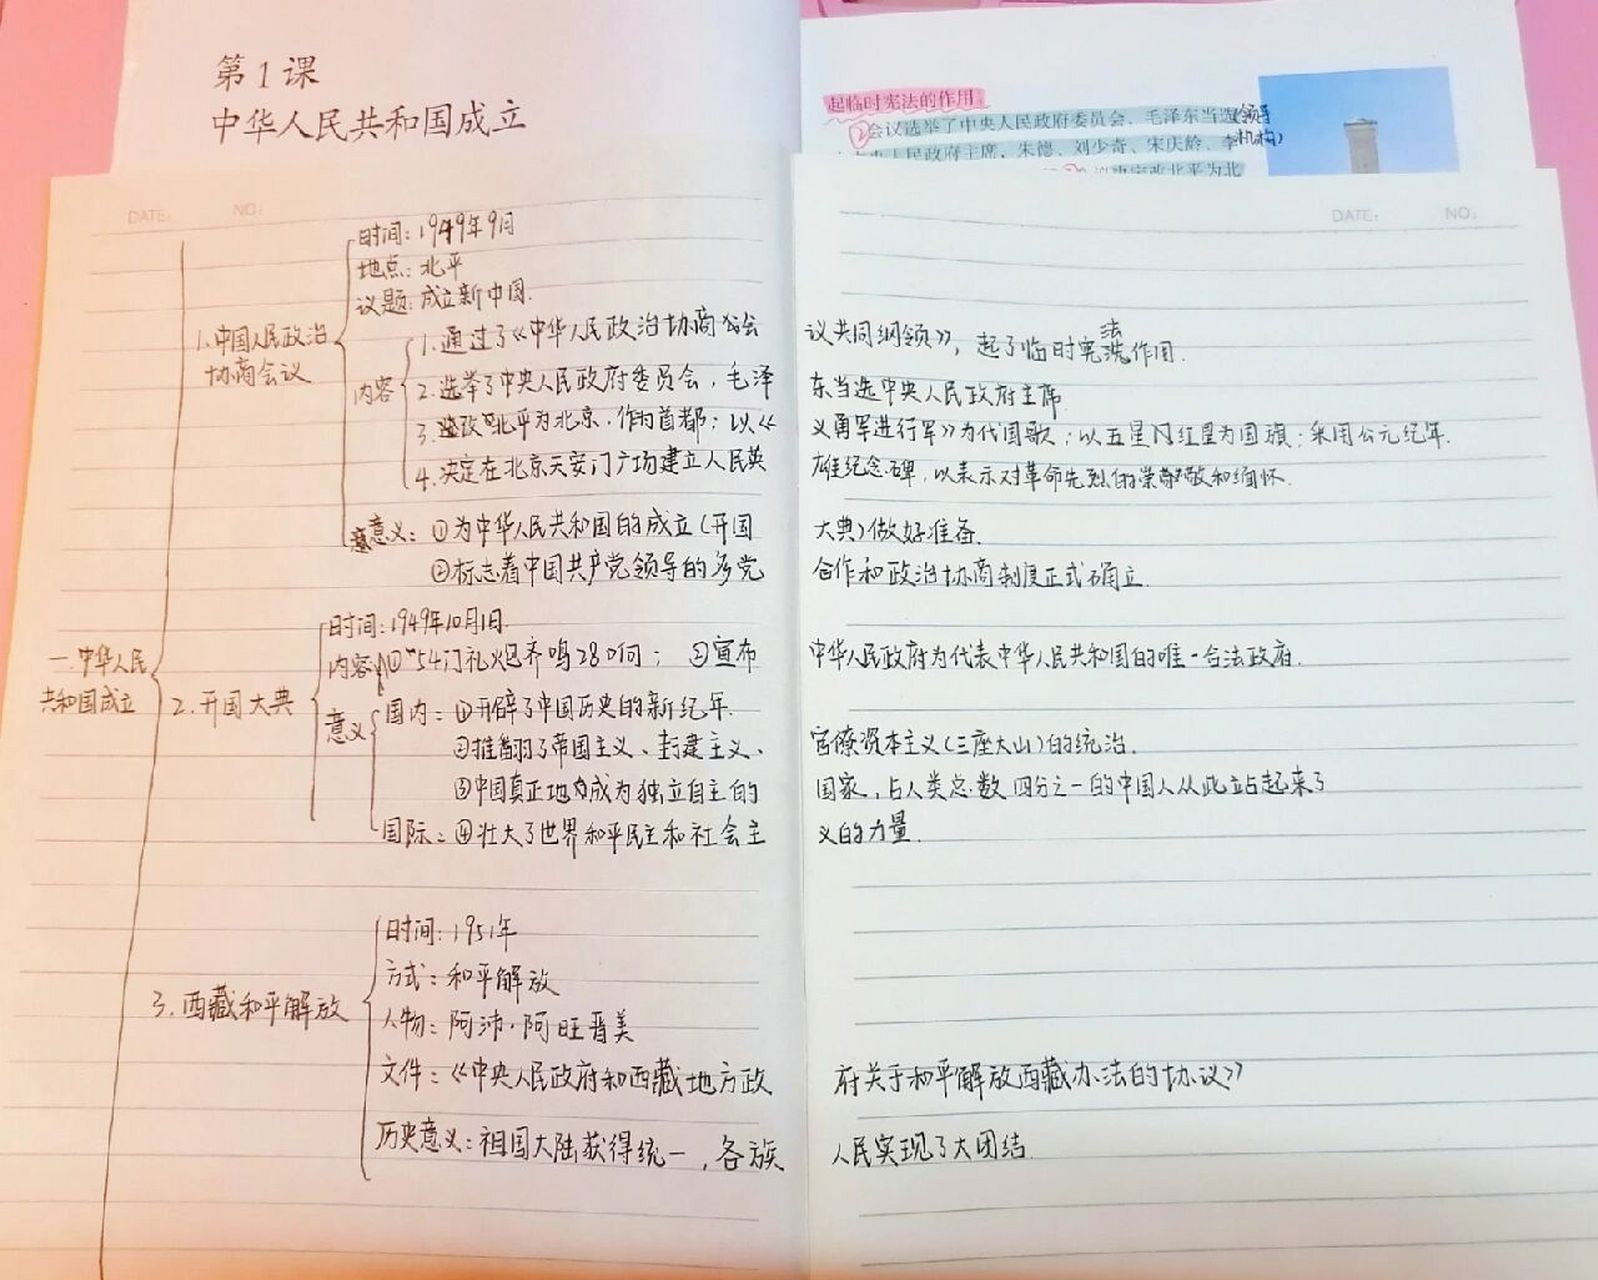 第1课
中华人民共和国成立
起临时宪法的作用。
②会议选举了中央人民政府委员会，毛泽东当选(领导
人民政府主席，朱德、刘少奇、宋庆龄、李机构)
改北平为北
DATE: NO:
DATE: NO:
时间：1949年9月
地点：北平
议题：成立新中国.
1.中国人民政治
协商会议
内容
1.通过了《中华人民政治协商会议共同纲领》，起了临时宪法作用.
2.选举了中央人民政府委员会，毛泽东当选中央人民政府主席
3.改北平为北京，作为首都；以《义勇军进行军》为代国歌；以五星红星为国旗；采用公元纪年.
4.决定在北京天安门广场建立人民英雄纪念碑，以表示对革命先烈的崇敬和缅怀.
意义：①为中华人民共和国的成立(开国大典)做好准备.
②标志着中国共产党领导的多党合作和政治协商制度正式确立.
一.中华人民
共和国成立
2.开国大典
时间：1949年10月1日.
内容①“54门礼炮齐鸣28响； ②宣布中华人民政府为代表中华人民共和国的唯一合法政府.
意义
国内：①开辟了中国历史的新纪年.
②推翻了帝国主义、封建主义、官僚资本主义(三座大山)的统治.
③中国真正地成为独立自主的国家，占人类总数四分之一的中国人从此站起来了
国际：④壮大了世界和平民主和社会主义的力量.
3.西藏和平解放
时间：1951年
方式：和平解放
人物：阿沛·阿旺晋美
文件：《中央人民政府和西藏地方政府关于和平解放西藏办法的协议》
历史意义：祖国大陆获得统一，各族人民实现了大团结.